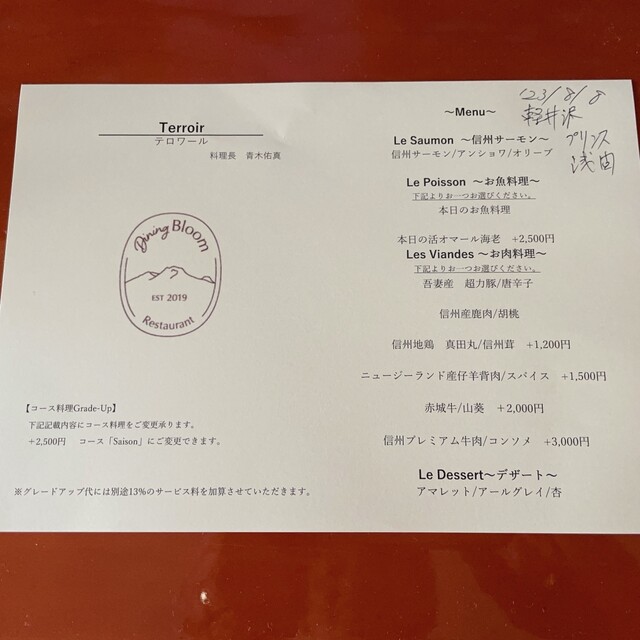 Terroir
テロワール
料理長　青木佑真
Dining Bloom
EST 2019
Restaurant
【コース料理Grade-Up】
下記記載内容にコース料理をご変更承ります。
+2,500円　コース「Saison」にご変更できます。
※グレードアップ代には別途13%のサービス料を加算させていただきます。
'23/8/8
軽井沢
プリンス
浅間
～Menu～
Le Saumon ～信州サーモン～
信州サーモン/アンショワ/オリーブ
Le Poisson ～お魚料理～
下記よりお一つお選びください。
本日のお魚料理
本日の活オマール海老　+2,500円
Les Viandes ～お肉料理～
下記よりお一つお選びください。
吾妻産　超力豚/唐辛子
信州産鹿肉/胡桃
信州地鶏　真田丸/信州茸　+1,200円
ニュージーランド産仔羊背肉/スパイス　+1,500円
赤城牛/山葵　+2,000円
信州プレミアム牛肉/コンソメ　+3,000円
Le Dessert～デザート～
アマレット/アールグレイ/杏